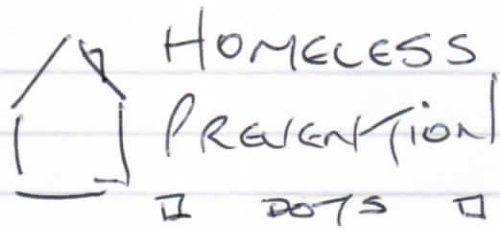 HOMELESS
PREVENTION
DOTS